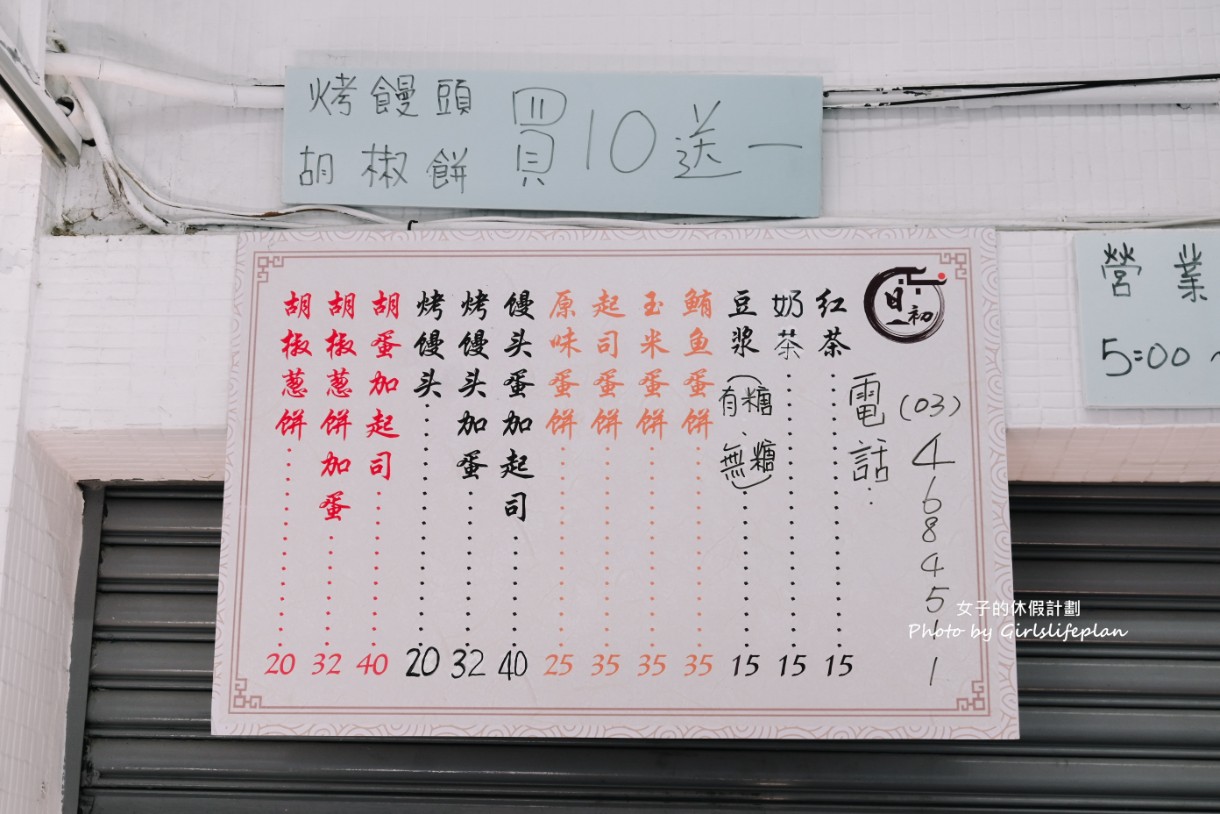 烤饅頭
胡椒餅
買10送一
營業
5:00~
日初
電話:
(03)
4684511
红茶 15
奶茶 15
豆浆(有糖、無糖) 15
鲔鱼蛋饼 35
玉米蛋饼 35
起司蛋饼 35
原味蛋饼 25
馒头蛋加起司 40
烤馒头加蛋 32
烤馒头 20
胡蛋加起司 40
胡椒蔥饼加蛋 32
胡椒蔥饼 20
女子的休假計劃
Photo by Girlslifeplan